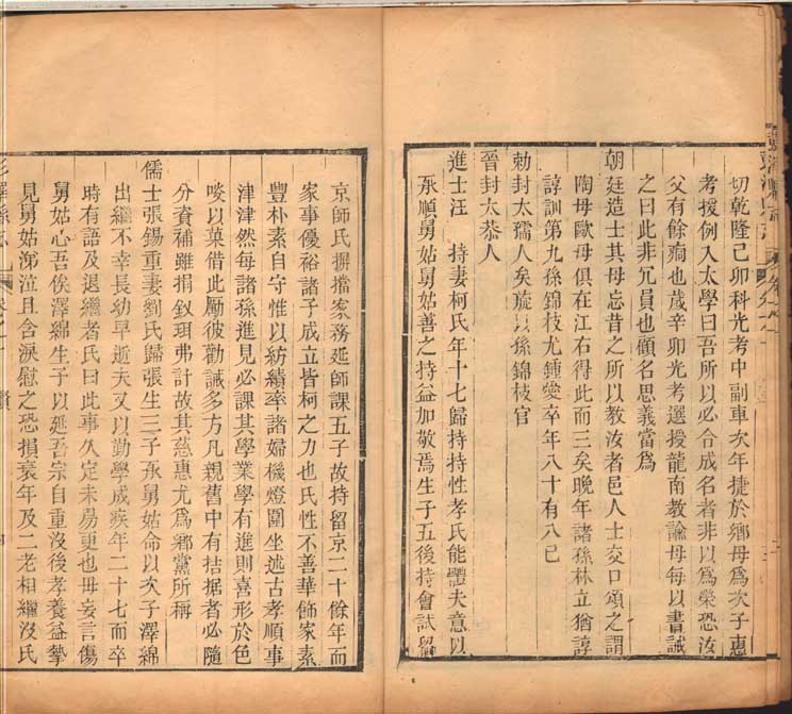 切乾隆己卯科光考中副車次年捷於鄉母爲次子惠
考援例入太學曰吾所以必合成名者非以爲榮恐汝
父有餘痾也歲辛卯光考選授龍南教諭母每以書誡
之曰此非冗員也顧名思義當爲
朝廷造士其母忘昔之所以教汝者邑人士交口頌之謂
陶母歐母俱在江右得此而三矣晚年諸孫林立猶諄
諄訓第九孫錦枝尤鍾愛卒年八十有八巳
勅封太孺人矣旋以孫錦枝官
晉封太恭人
進士汪 持妻柯氏年十七歸持持性孝氏能體夫意以
承順舅姑舅姑善之持益加敬焉生子五後持會試留
京師氏摒擋家務延師課五子故持留京二十餘年而
家事優裕諸子成立皆柯之力也氏性不善華飾家素
豐朴素自守惟以紡績率諸婦機燈圍坐述古孝順事
津津然每諸孫進見必課其學業學有進則喜形於色
啖以菓借此勵彼勸誡多方凡親舊中有拮据者必隨
分資補雖捐釵珥弗計故其慈惠尤爲鄉黨所稱
儒士張錫重妻劉氏歸張生三子承舅姑命以次子澤綿
出繼不幸長幼早逝夫又以勤學成疾年二十七而卒
時有語及退繼者氏曰此事久定未昜更也毋妄言傷
舅姑心吾俟澤綿生子以延吾宗自重沒後孝養益摯
見舅姑涕泣且含淚慰之恐損衰年及二老相繼沒氏